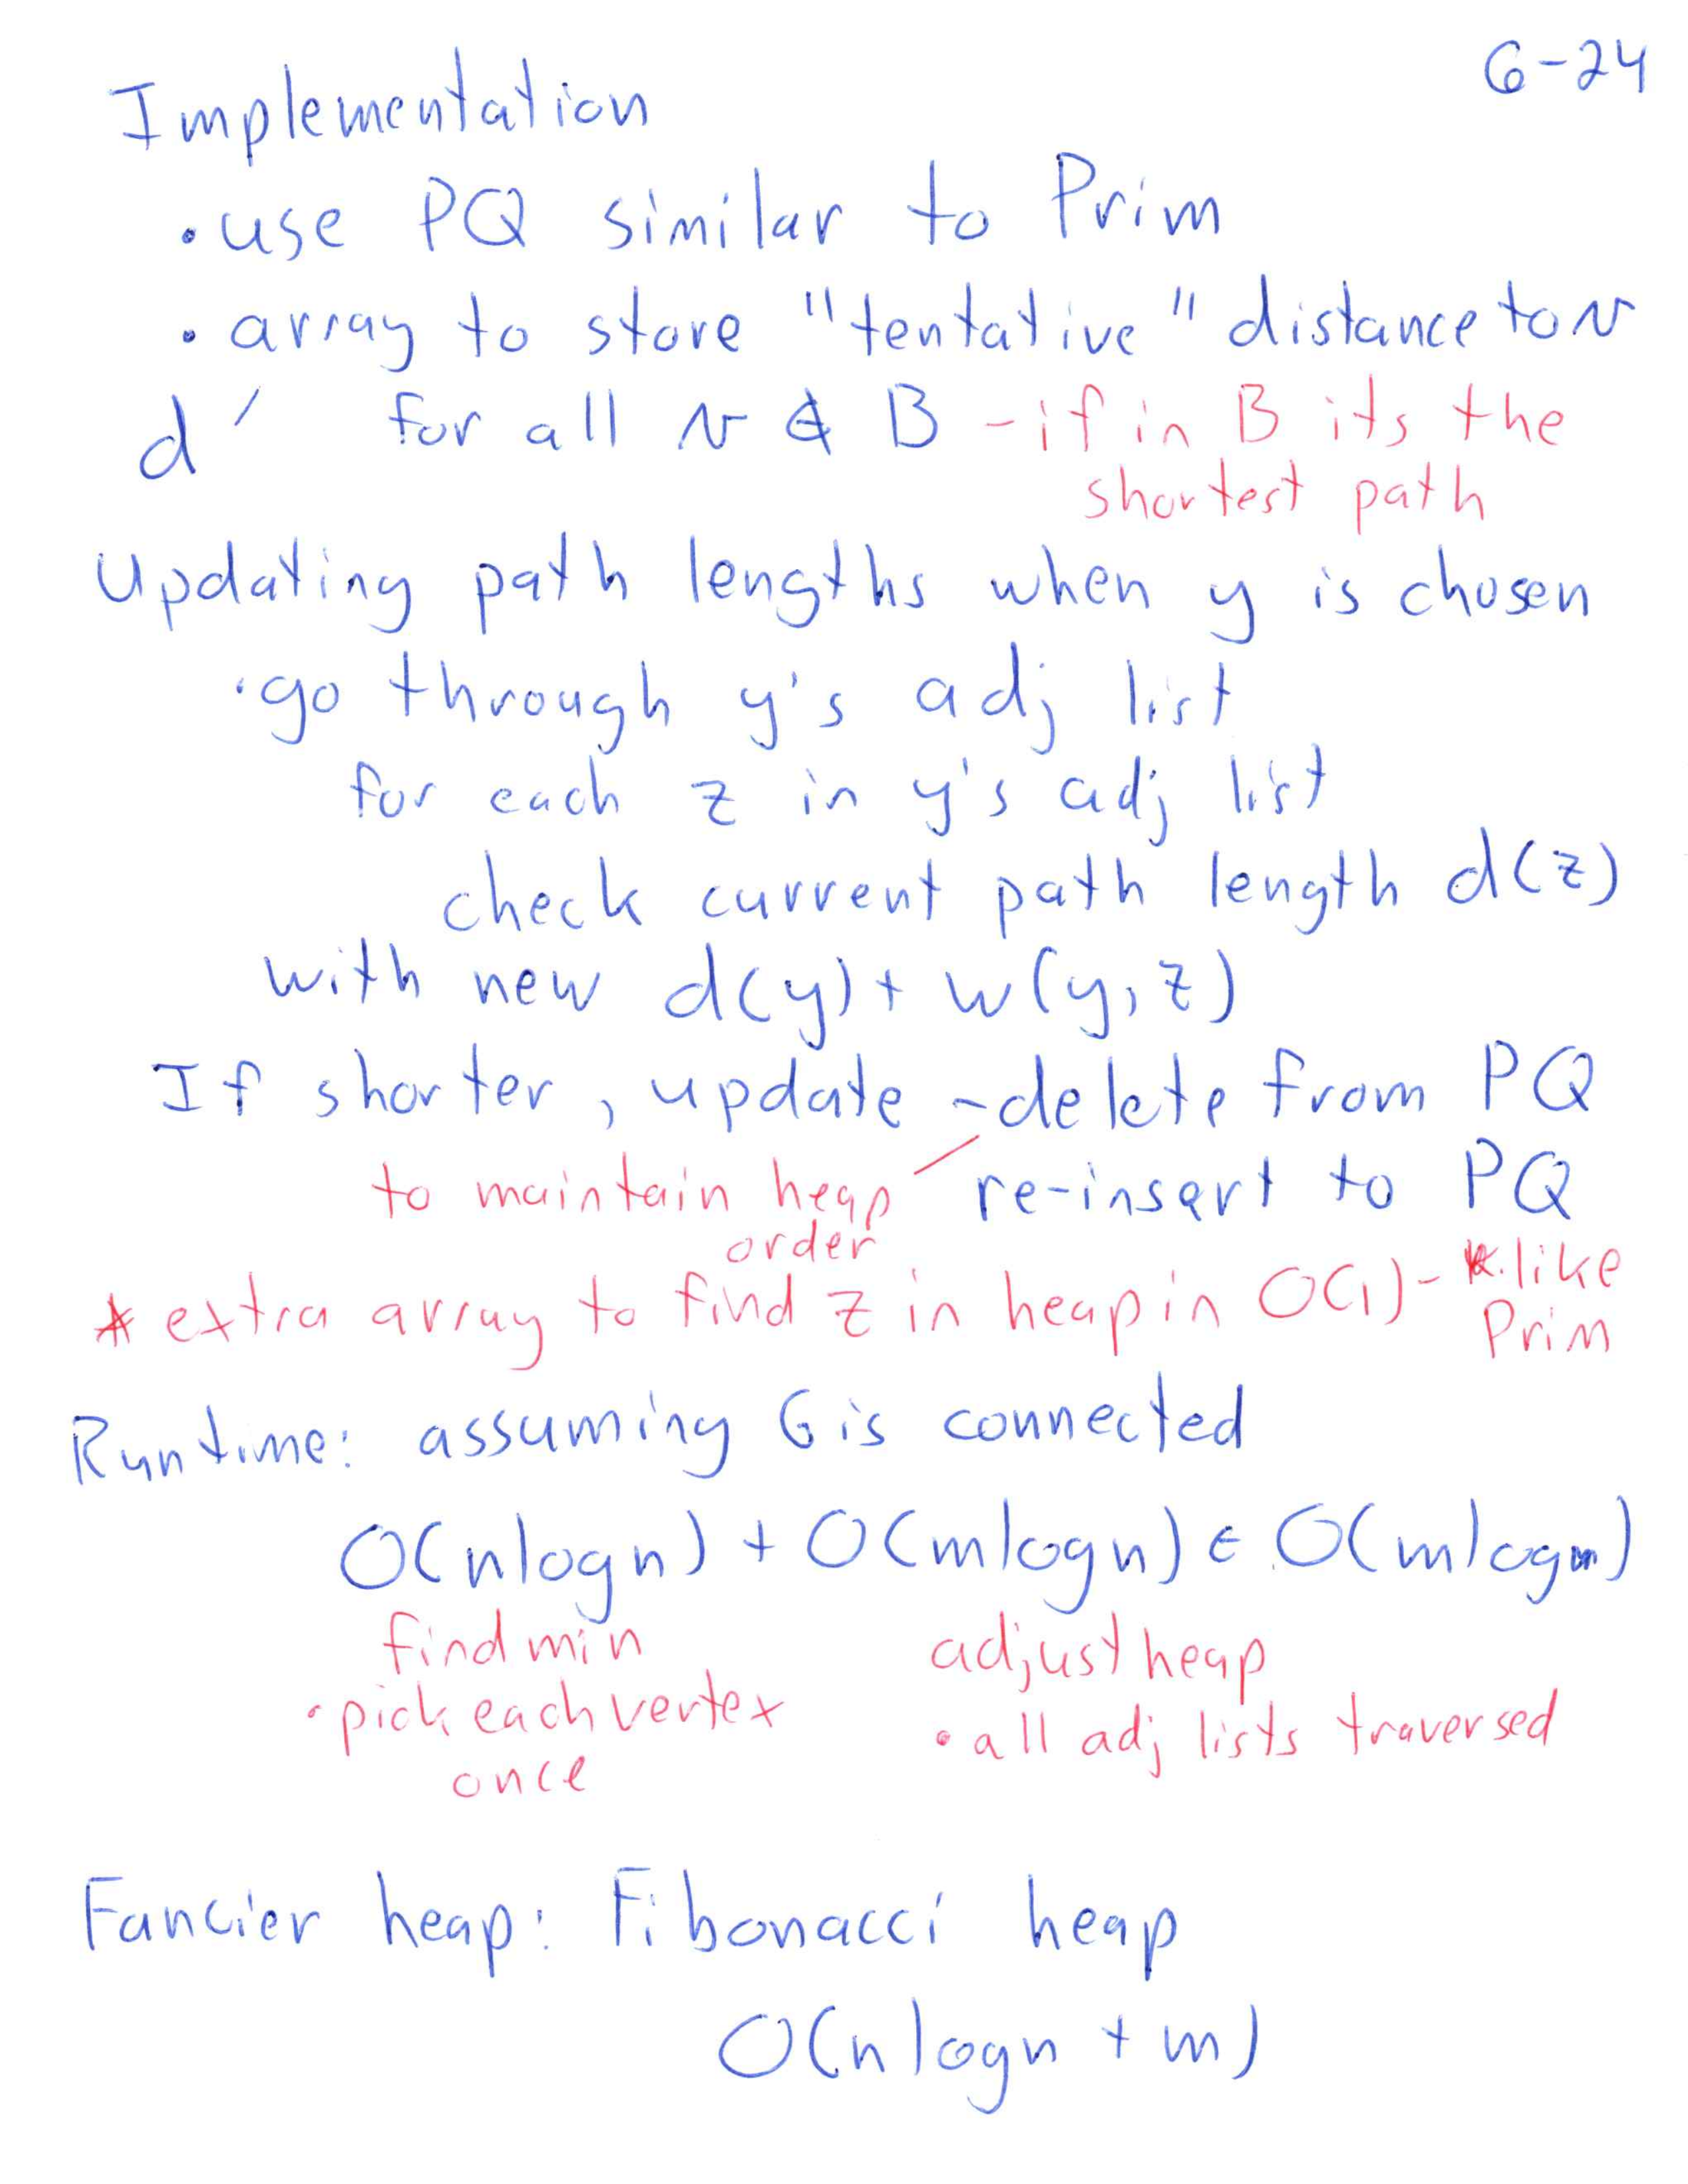 G-24
Implementation
• use PQ similar to Prim
• array to store "tentative" distance to v
d for all v ∉ B - if in B its the
shortest path
Updating path lengths when y is chosen
• go through y's adj list
for each z in y's adj list
check current path length d(z)
with new d(y) + w(y, z)
If shorter, update - delete from PQ
to maintain heap re-insert to PQ
order
* extra array to find z in heap in O(1) - like
Prim
Runtime: assuming G is connected
O(n log n) + O(m log n) ∈ O(m log n)
find min adjust heap
• pick each vertex • all adj lists traversed
once
Fancier heap: Fibonacci heap
O(n log n + m)